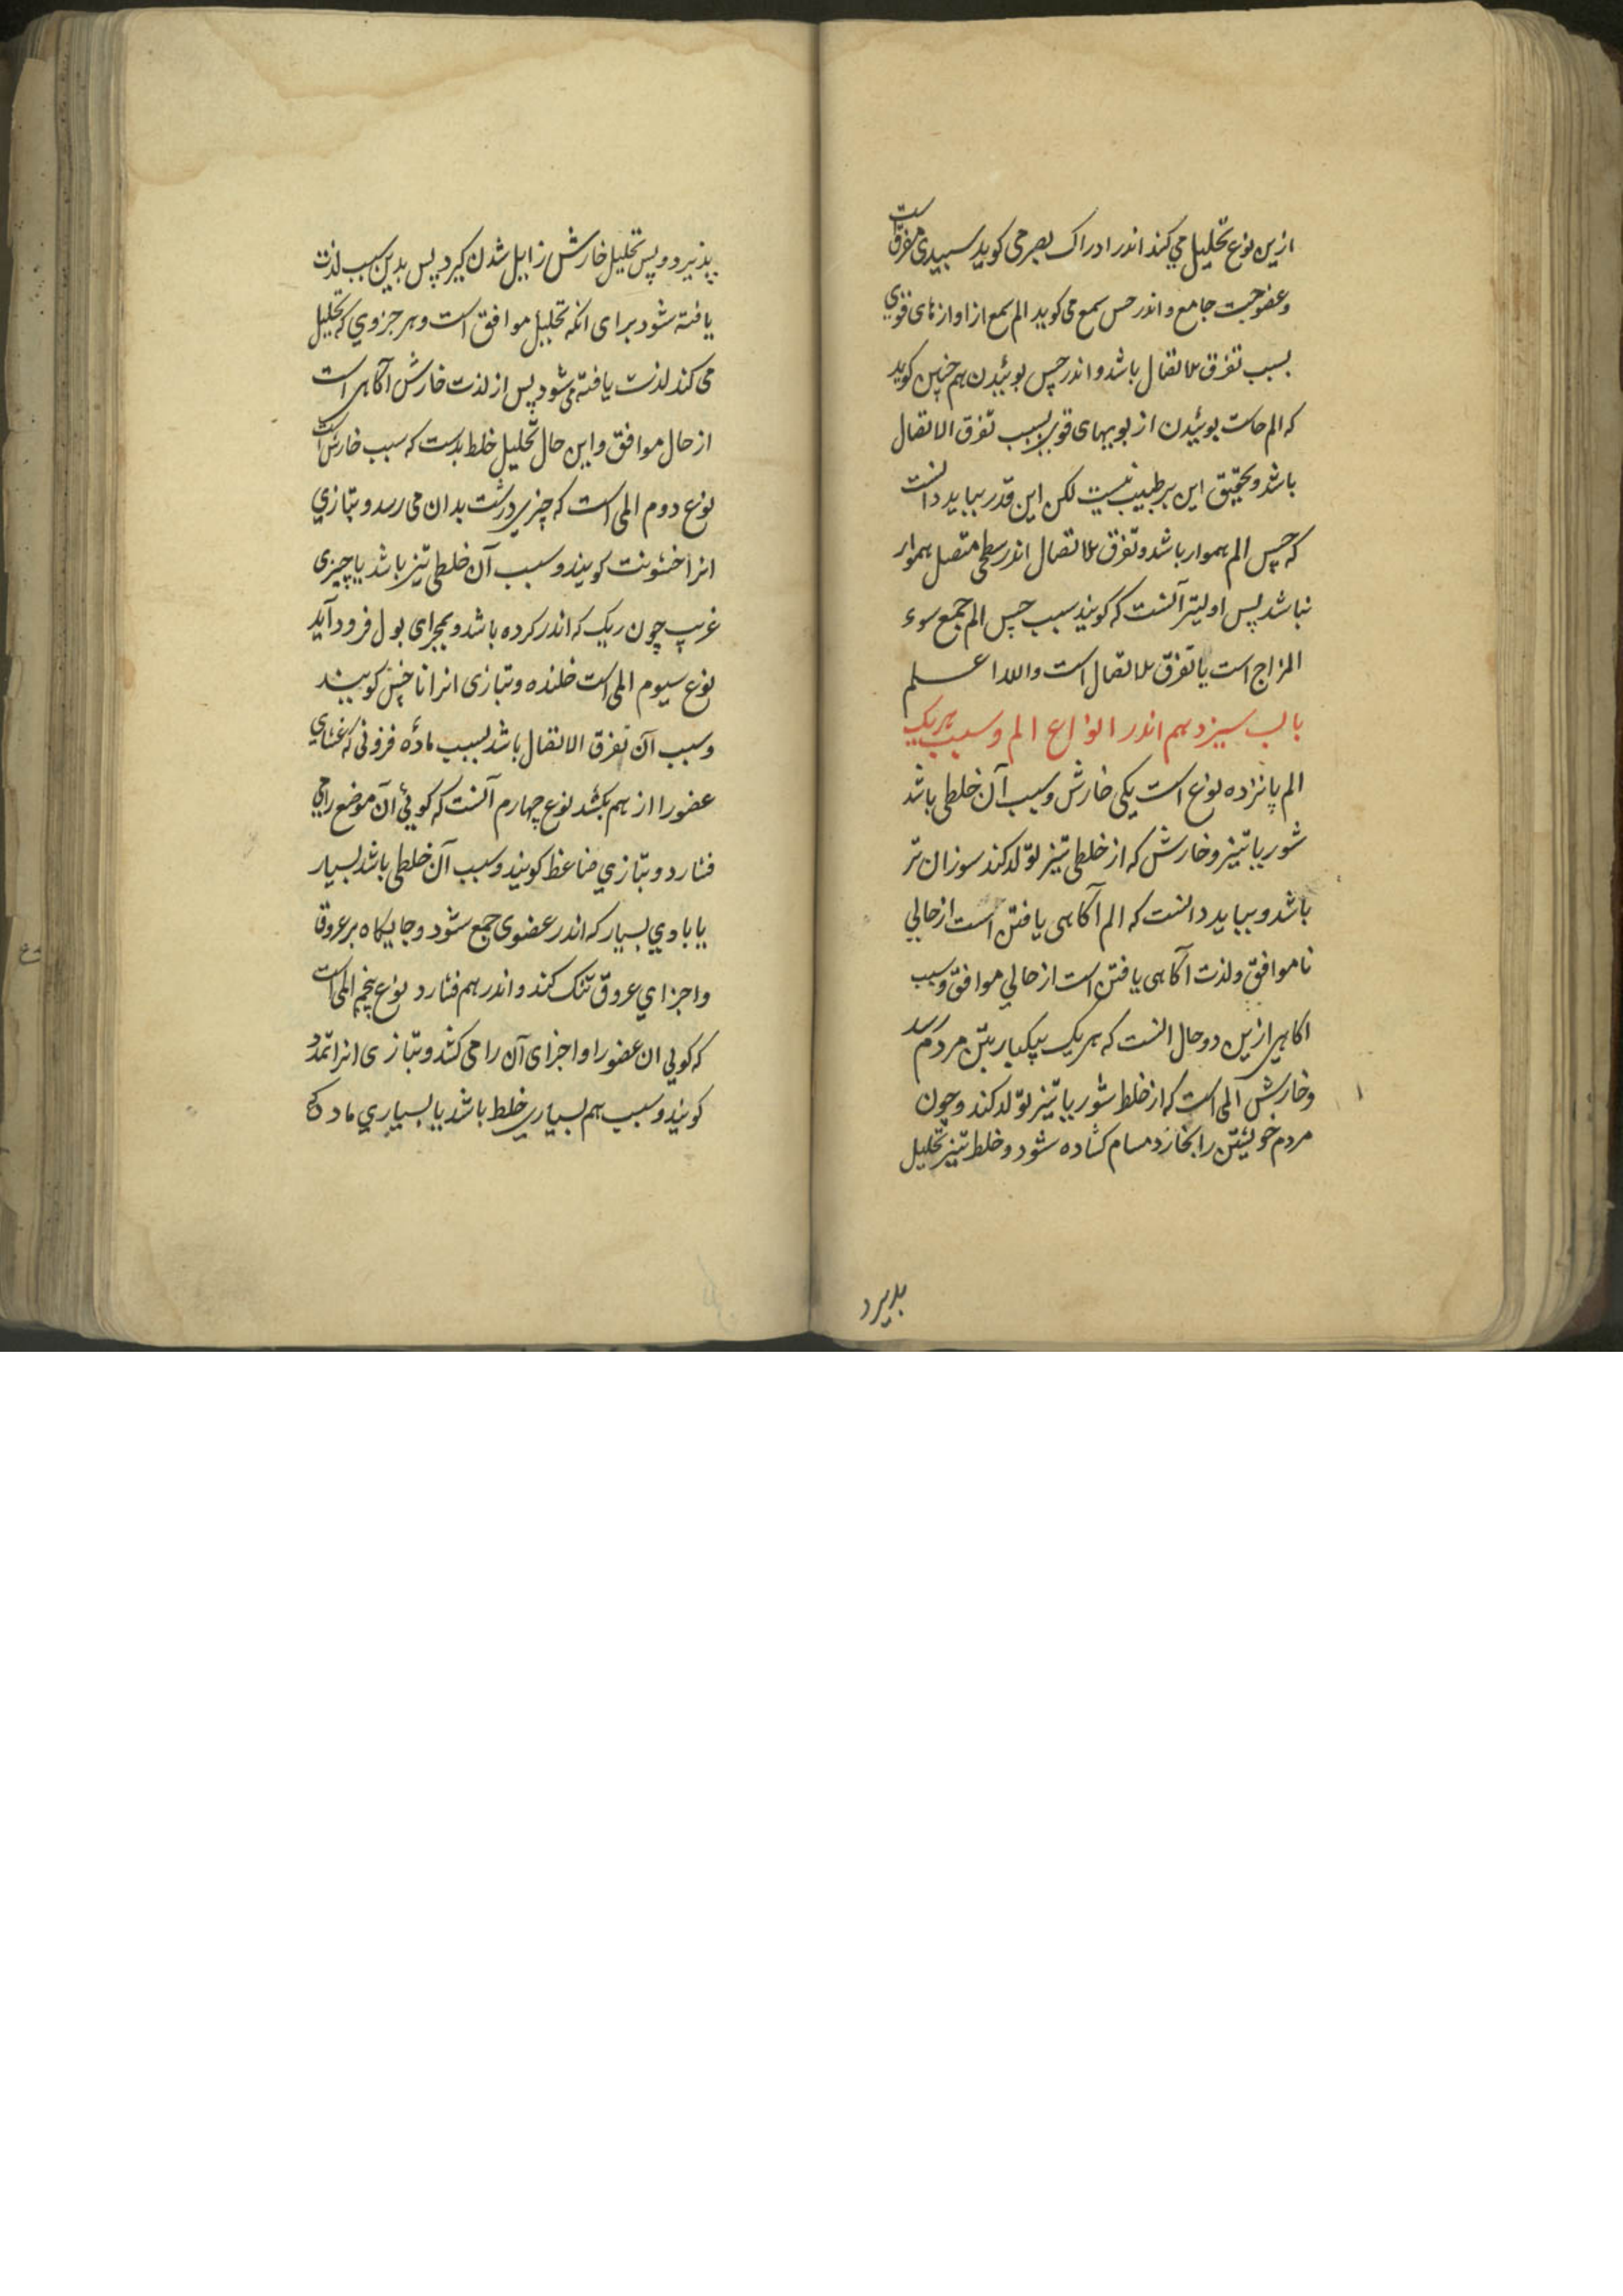 ازین نوع تحلیل می کند اندر ادراک بصر می کوید سبیدی مفرق است
وعفوجت جامع و اندر حس سمع می کوید الم سمع از اوازهای قوی
بسبب تفرق الاتصال باشد و اندر حس بوئیدن هم چنین کوید
که الم حاست بوئیدن از بویهای قوی بسبب تفرق الاتصال
باشد و تحقیق این بر طبیب نیست لکن این قدر بباید دانست
که حس الم هموار باشد و تفرق الاتصال اندر سطحی متصل هموار
نباشد پس اولیتر آنست که کویند سبب حس الم جمع سوء
المزاج است یا تفرق الاتصال است والله اعلم
باب سیزدهم اندر انواع الم و سبب هریک
الم پانزده نوع است یکی خارش و سبب آن خلطی باشد
شور یا تیز و خارش که از خلطی تیز تولد کند سوزان تر
باشد و بباید دانست که الم آکاهی یافتن است از حالی
ناموافق و لذت آکاهی یافتن است از حالی موافق و سبب
اکاهی ازین دو حال انست که هریک بیکبار بتن مردم رسد
و خارش المی است که از خلط شور یا تیز تولد کند و چون
مردم خویشتن را بخارد مسام کشاده شود و خلط تیز تحلیل
پذیرد
پذیرد و پس تحلیل خارش زایل شدن کیرد پس بدین سبب لذت
یافته شود برای انکه تحلیل موافق است و هر جزوی که تحلیل
می کند لذت یافته می شود پس از لذت خارش آکاهی است
از حال موافق و این حال تحلیل خلط بدست که سبب خارش است
نوع دوم المی است که چیزی درشت بدان می رسد و بتازی
انرا خشونت کویند و سبب آن خلطی تیز باشد یا چیزی
غریب چون ریک که اندر کرده باشد و بمجرای بول فرود آید
نوع سیوم المی است خلنده و بتازی انرا ناخس کویند
و سبب آن تفرق الاتصال باشد بسبب ماده فزونی که غشای
عضو را از هم بکشد نوع چهارم آنست که کوئی آن موضع را می
فشارد و بتازی ضاغط کویند و سبب آن خلطی باشد بسیار
یا بادی بسیار که اندر عضوی جمع شود و جایکاه بر عروق
و اجزای عروق تنک کند و اندر هم فشارد نوع پنجم المی است
که کویی ان عضو را و اجزای آن را می کشد و بتازی انرا تمدد
کویند و سبب هم بسیاری خلط باشد یا بسیاری ماده که